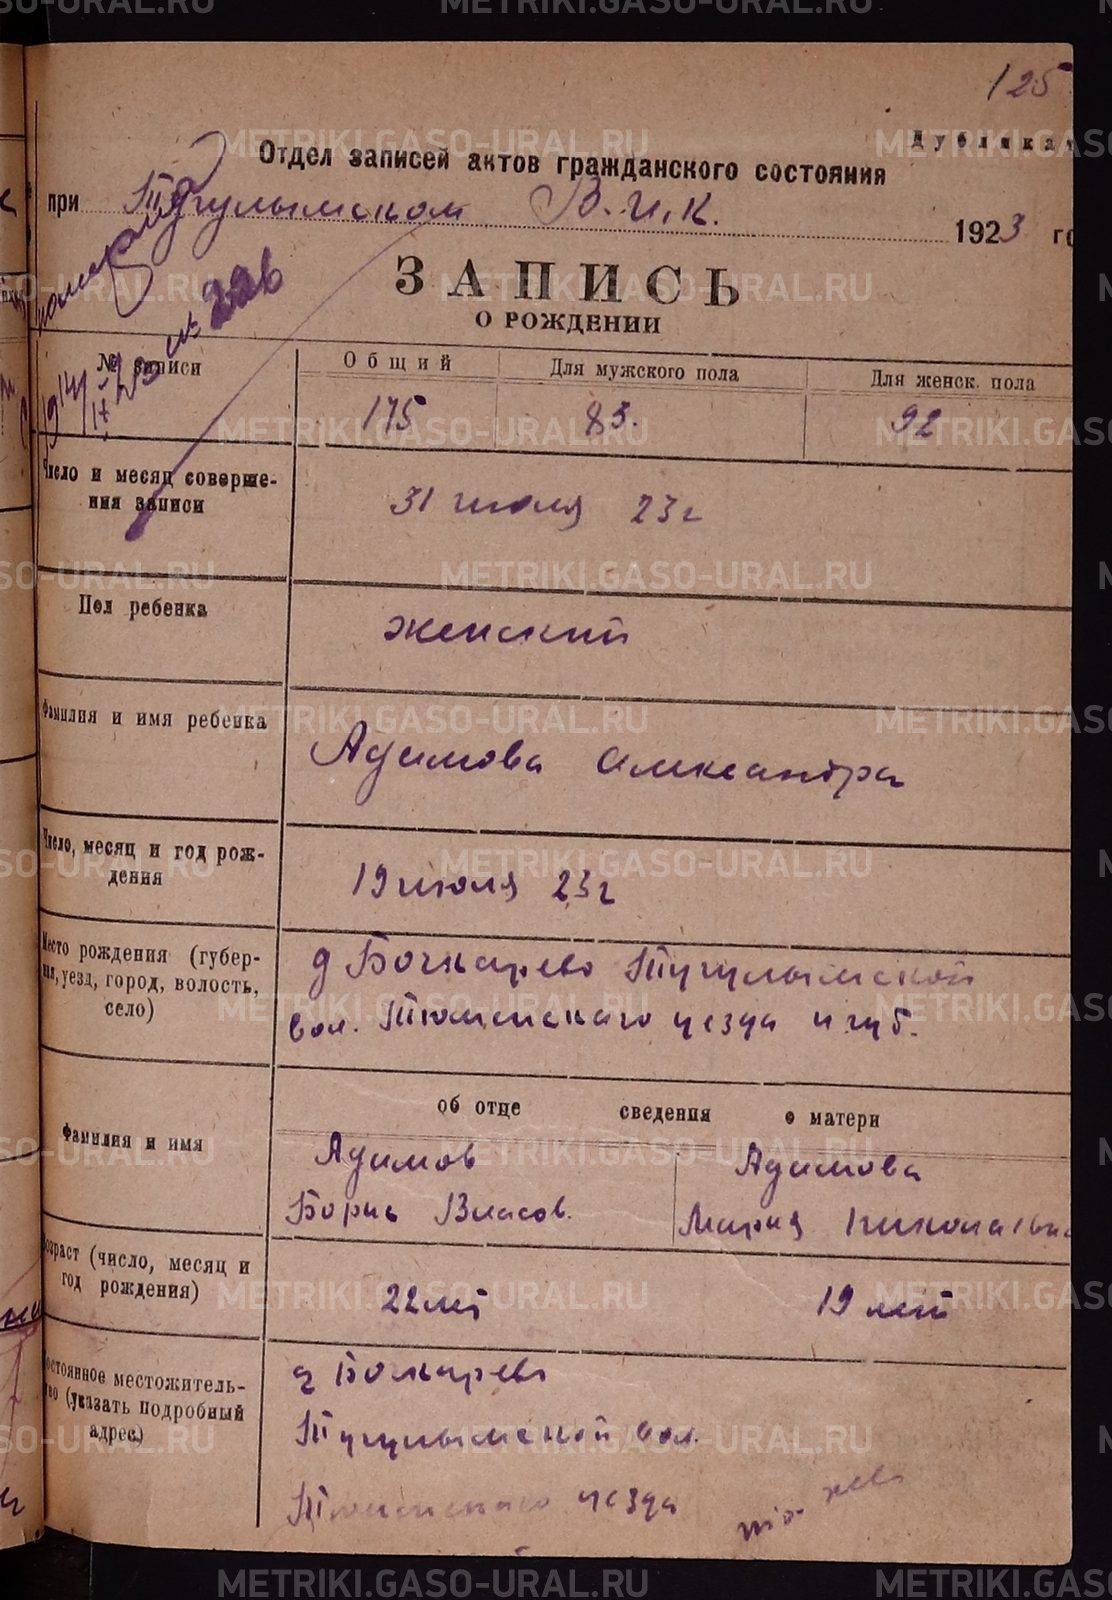 125
Дубликат
Отдел записей актов гражданского состояния
при Тугулымском В.И.К. 1923 го
умерла
19 14/IX 23 № 226
ЗАПИСЬ
О РОЖДЕНИИ
№ записи Общий Для мужского пола Для женск. пола
175 83. 92
Число и месяц соверше-
ния записи
31 июля 23 г
Пол ребенка
женский
Фамилия и имя ребенка
Адимова Александра
Число, месяц и год рож-
дения
19 июля 23 г
Место рождения (губер-
ния, уезд, город, волость,
село)
д Бочкарево Тугулымской
вол. Тюменскаго уезда и губ.
об отце сведения о матери
Фамилия и имя
Адимов Адимова
Борис Власов. Мария Николаевна
Возраст (число, месяц и
год рождения)
22 лет 19 лет
Постоянное местожитель-
ство (указать подробный
адрес)
д Бочкарево
Тугулымской вол.
Тюменскаго уезда
то-же
METRIKI.GASO-URAL.RU